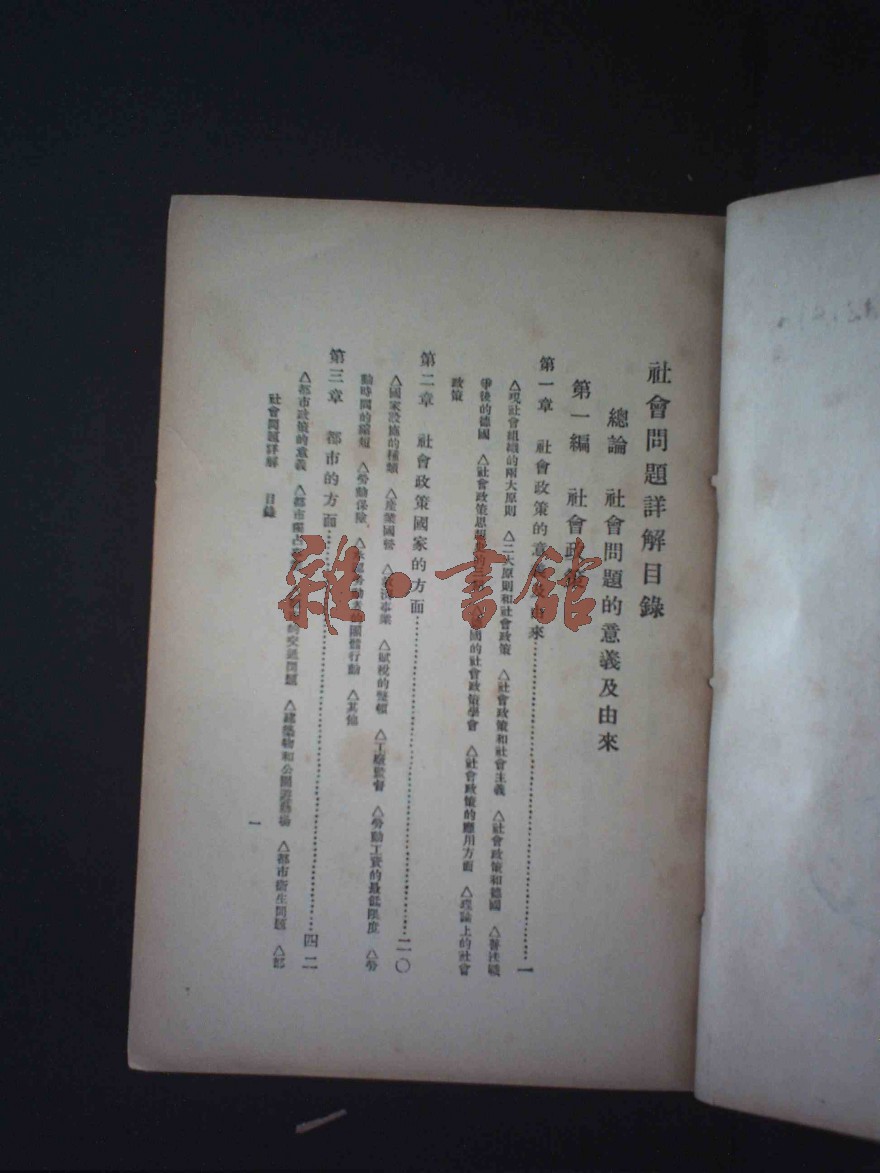 社會問題詳解目錄
總論 社會問題的意義及由來
第一編 社會政策
第一章 社會政策的意義及由來……一
△現社會組織的兩大原則 △二大原則和社會政策 △社會政策和社會主義 △社會政策和德國 △普法戰
爭後的德國 △社會政策思想 國的社會政策學會 △社會政策的應用方面 △理論上的社會
政策
第二章 社會政策國家的方面……二〇
△國家設施的種類 △產業國營 事業 △賦稅的整頓 △工廠監督 △勞動工資的最低限度 △勞
動時間的縮短 △勞動保險 團體行動 △其他
第三章 都市的方面……四二
△都市政策的意義 △都市獨占 的交通問題 △建築物和公園運動場 △都市衛生問題 △都
社會問題詳解 目錄
一
雜·書館